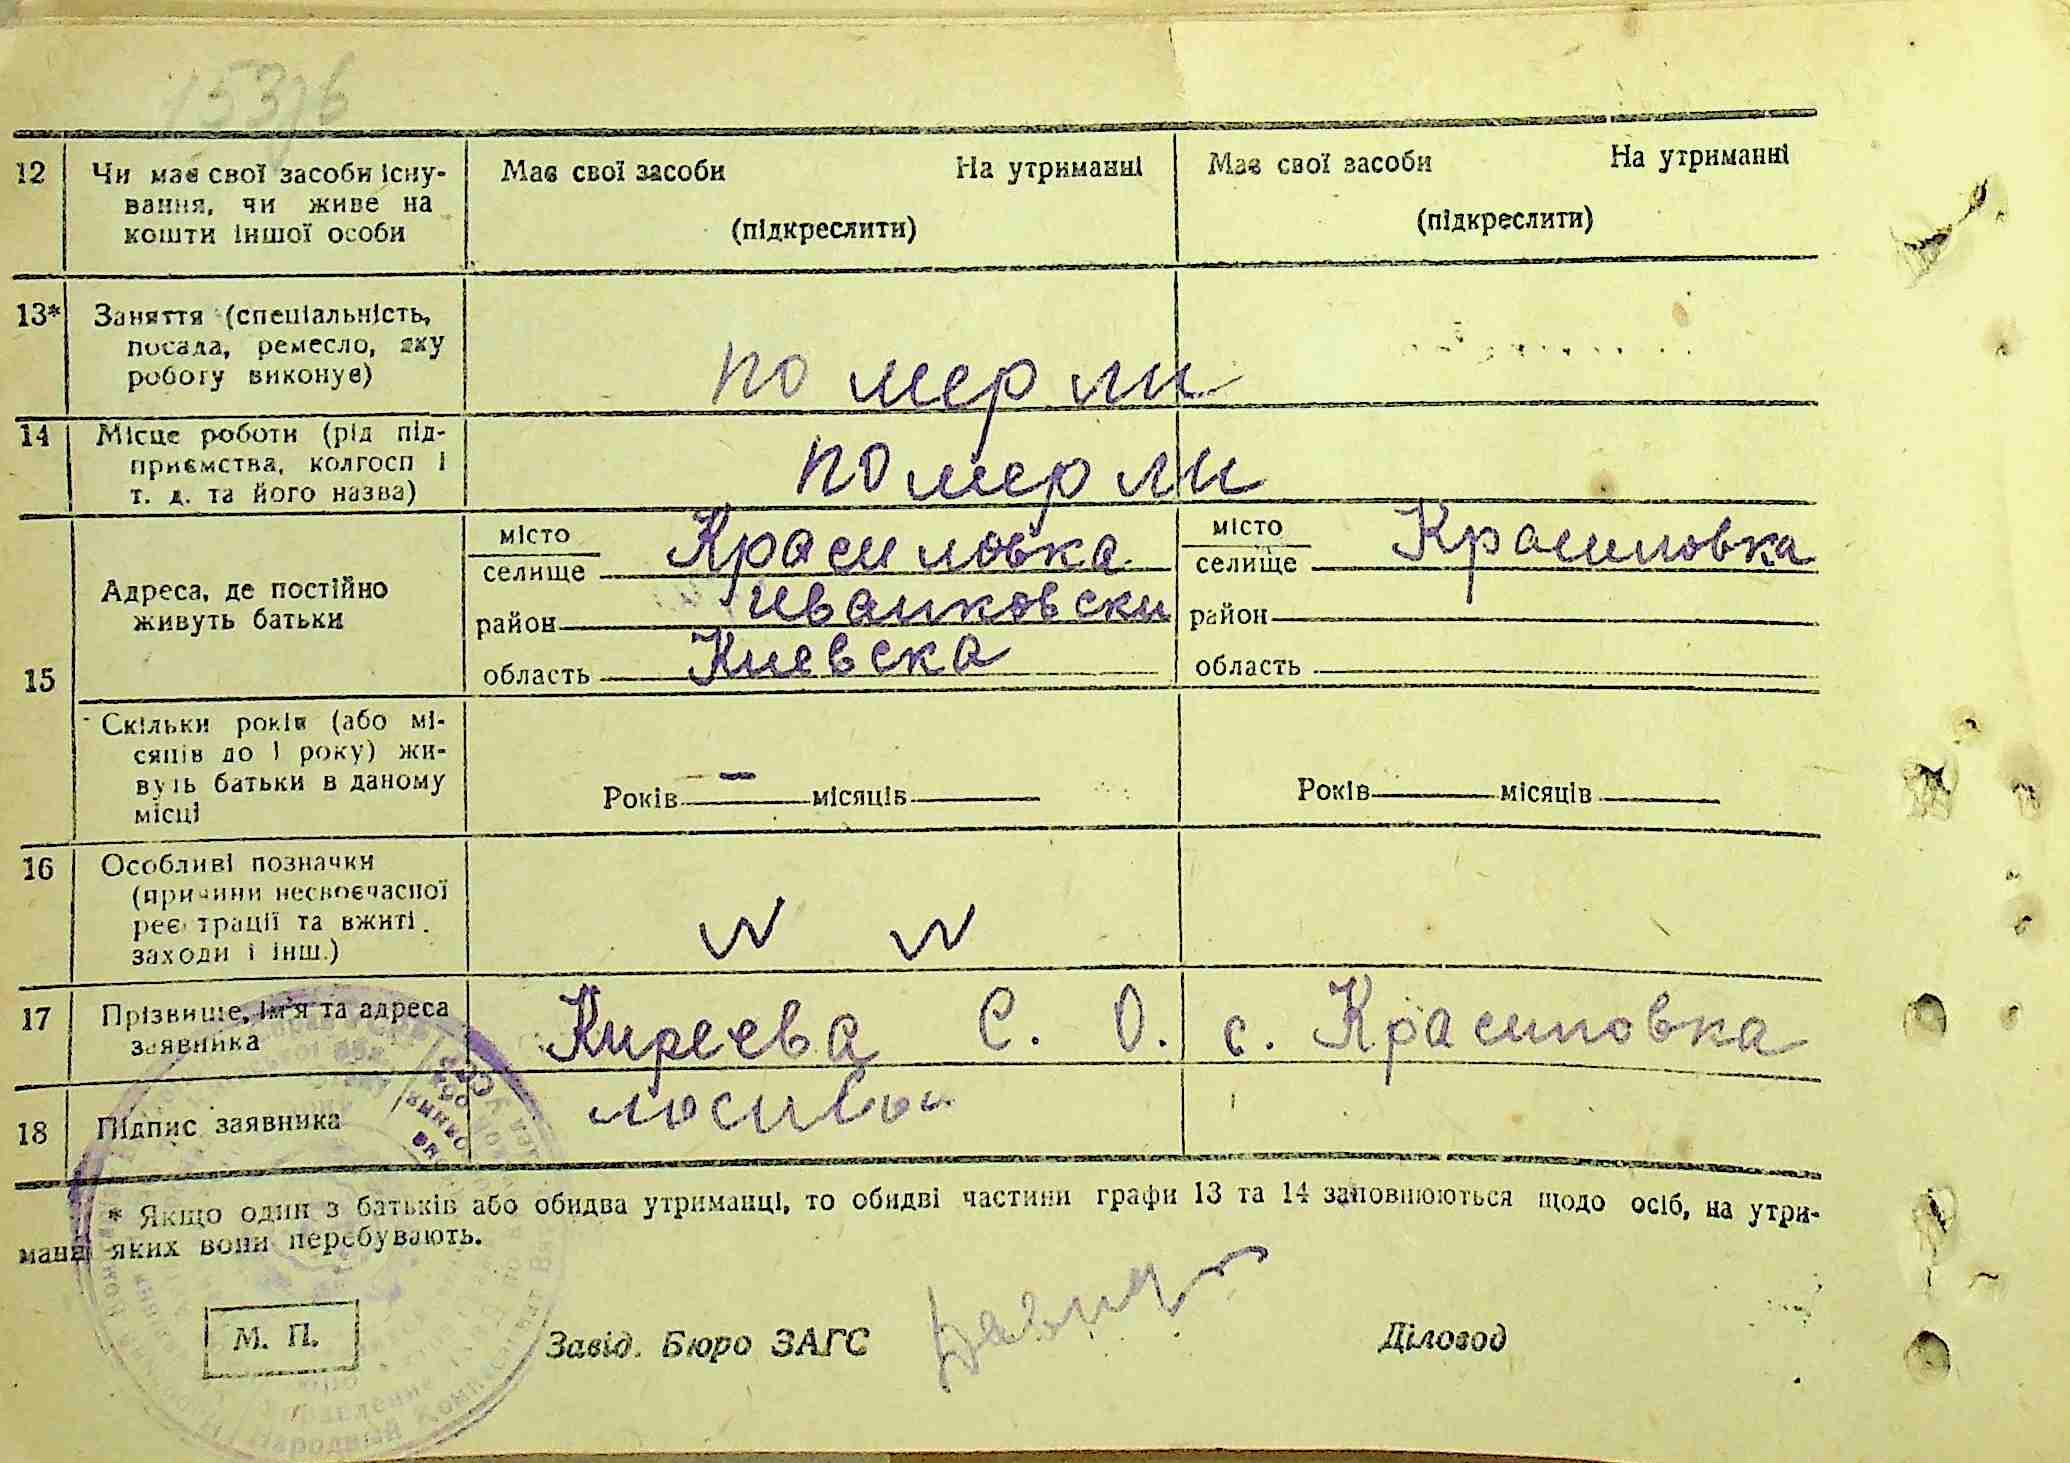 153/6
12 Чи має свої засоби існу-
вання, чи живе на
кошти іншої особи
Має свої засоби На утриманні
(підкреслити)
Має свої засоби На утриманні
(підкреслити)
13* Заняття (спеціальність,
посада, ремесло, яку
роботу виконує)
померли
14 Місце роботи (рід під-
приємства, колгосп і
т. д. та його назва)
померли
15
Адреса, де постійно
живуть батьки
місто
селище Красиловка
район Иванковски
область Киевска
місто
селище Красиловка
район
область
Скільки років (або мі-
сяців до 1 року) жи-
вуть батьки в даному
місці
Років — місяців
Років місяців
16 Особливі позначки
(причини несвоєчасної
реєстрації та вжиті
заходи і інш.)
17 Прізвище, ім'я та адреса
заявника
Киреева С. О. с. Красиловка
18 Підпис заявника
* Якщо один з батьків або обидва утриманці, то обидві частини графи 13 та 14 заповнюються щодо осіб, на утри-
манні яких вони перебувають.
М. П.
Завід. Бюро ЗАГС
Діловод